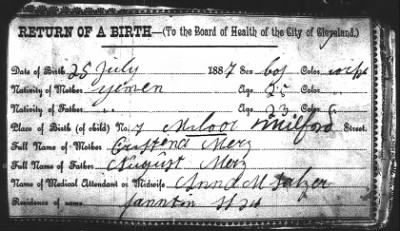 RETURN OF A BIRTH—(To the Board of Health of the City of Cleveland.)
Date of Birth 25 july 1887 Sex boy Color
Nativity of Mother yemen Age 25 Color
Nativity of Father " " Age 23 Color
Place of Birth (of child) No. 7 Milford Street.
Full Name of Mother Merz
Full Name of Father August Merz
Name of Medical Attendant or Midwife Anna M Salzer
Residence of same